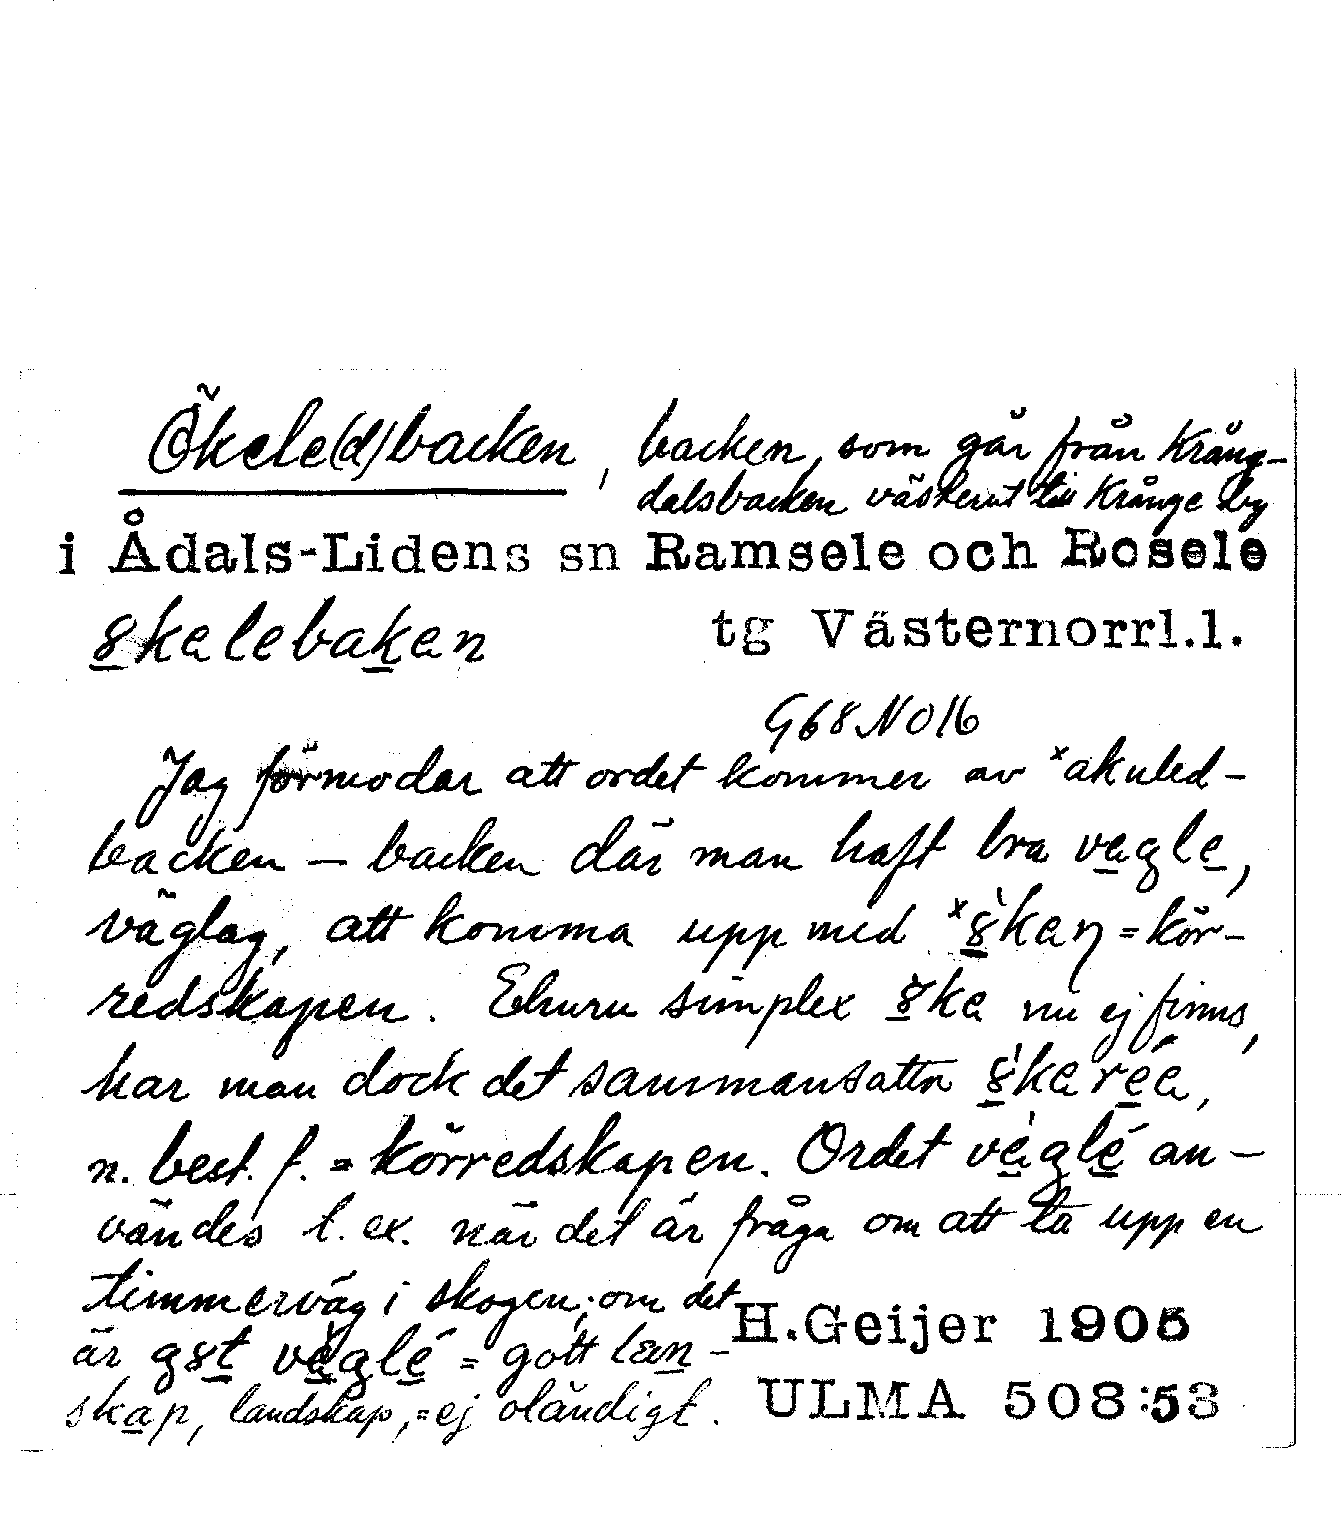 Ökele(d)backen, backen, som går från Krång-
dalsbacken västerut till Krånge by
i Ådals-Lidens sn Ramsele och Rosele
8kelebaken tg Västernorrl.l.
G68NO16
Jag förmodar att ordet kommer av ˣakuled-
backen – backen där man haft bra vegle,
väglag, att komma upp med ˣ8̀keŋ = kör-
redskapen. Ehuru simplex 8ke nu ej finns,
har man dock det sammansatta 8̀kereá,
n. best. f. = körredskapen. Ordet vèglé an-
vändes t. ex. när det är fråga om att ta upp en
timmerväg i skogen; om det
är g8t vèglé = gott læn-
skap, landskap, = ej oländigt.
H.Geijer 1905
ULMA 508:53